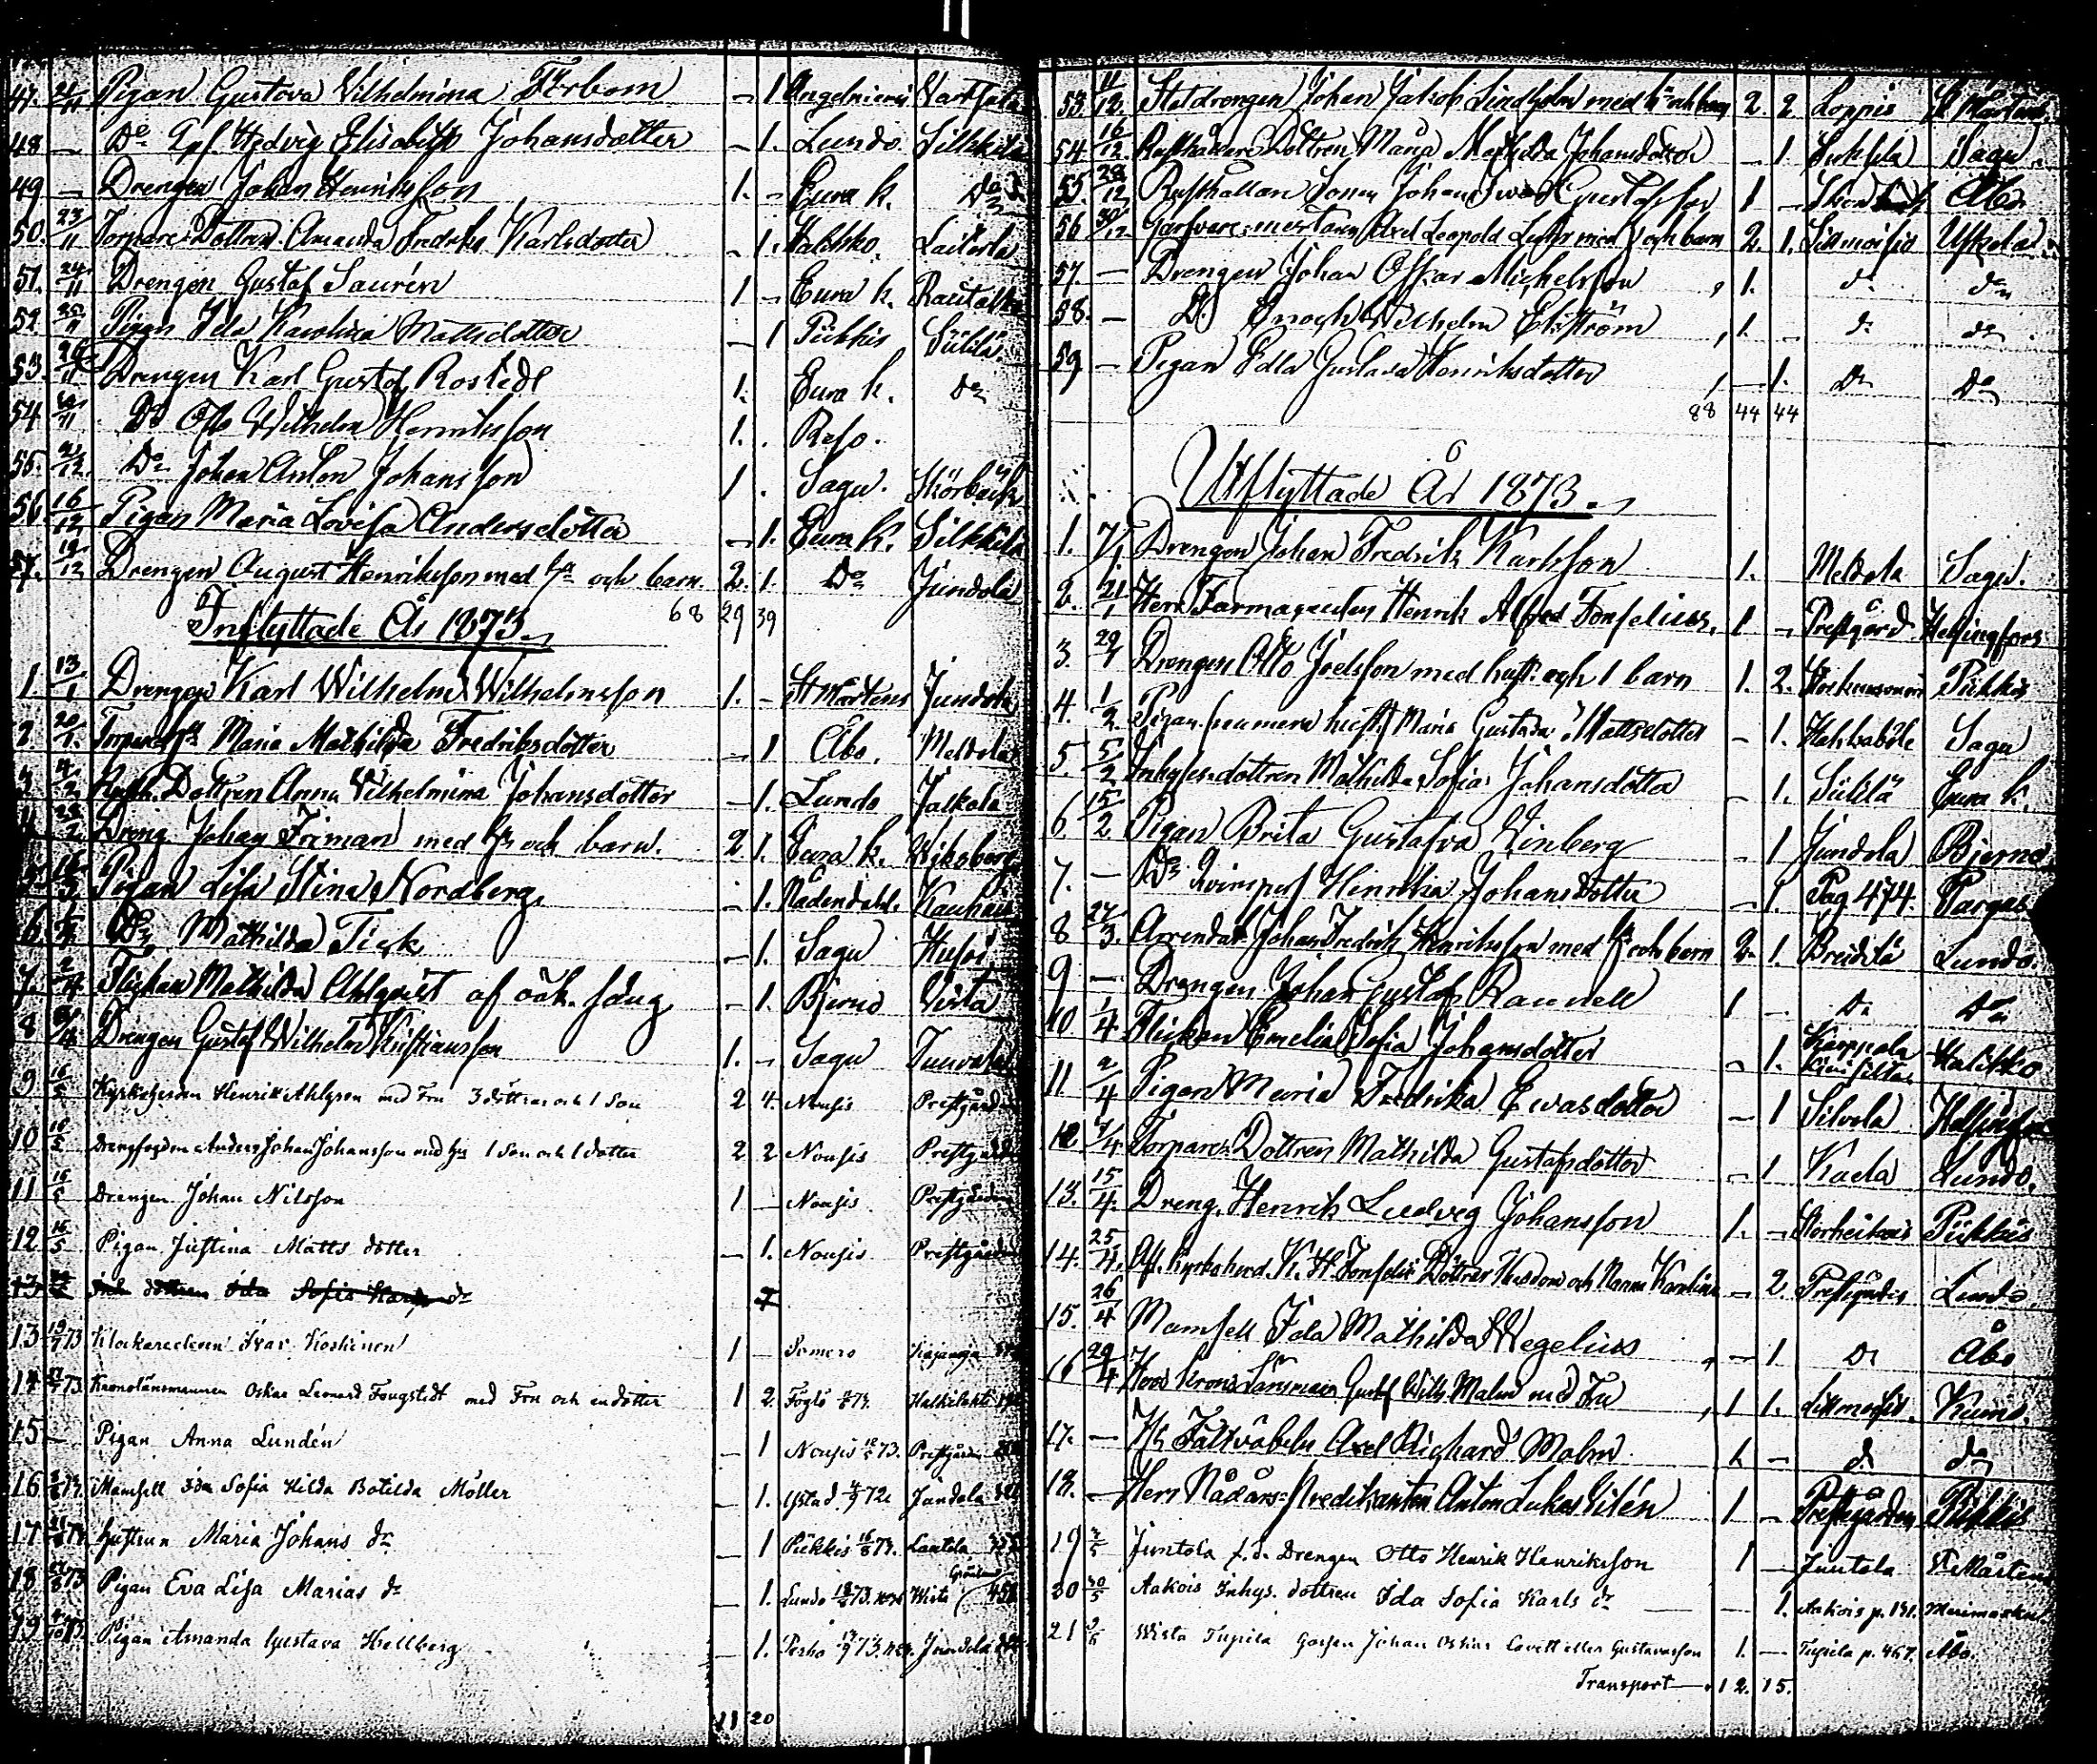 47. 21/11 Pigan Gustava Vilhelmina Törbom – 1
48 – Do Hedvig Elisabeth Johansdotter – 1. Lundo. Silkkilä
49 – Drengen Johan Henriksson 1. – Eura k. Do
50. 23/11 Torpare Dottren Amanda Fredrika Karlsdotter – 1.
51. 24/11 Drengen Gustaf Saurén 1 – Eura k.
52. 25/11 Pigan Ida Karolina Mattsdotter – 1 Piikkis
53. 26/11 Drengen Karl Gustaf Rostedt 1. Eura k. Do
54 Do Otto Wilhelm Henriksson 1. Reso.
55. Do Johan Anton Johansson 1. Sagu. Skörbäck
56. 16/12 Pigan Maria Lovisa Andersdotter – 1. Eura k. Silkkilä
57. 19/12 Drengen August Henriksson med h. och barn. 2. 1. Do Jundola
68 29 39
Inflyttade År 1873.
1. 13/1 Drengen Karl Wilhelm Wilhelmsson 1. – St Mårtens Jundola
2 20/1. Maria Mathilda Fredriksdotter – 1 Åbo. Meldola
3 4/2 Dottren Anna Vilhelmina Johansdotter – 1. Lundo Jalkala
4 28/2 Dreng Johan Friman med h. och barn. 2 1. Eura k.
5 Pigan Lisa Stina Nordberg. – 1. Nådendahl.
6 Do Mathilda Fisk – 1. Sagu
7 2/4 Flickan Mathilda Ahlqvist af – 1. Bjerno Wista
8 Drengen Gustaf Wilhelm Kristiansson 1. – Sagu
9 16/5 Kyrkoherden Henrik Ahlgren med Fru 3 döttrar och 1 Son 2 4. Nousis Prestgården
10 16/5 Drengfogden Anders Johan Johansson med hu 1 Son och 1 dotter 2 2 Nousis Prestgården
11 16/5 Drengen Johan Nilsson 1 – Nousis Prestgården
12 16/5 Pigan Justina Matts dotter – 1. Nousis Prestgården
13 dottren Ida Sofia Karls dr
13 19/7 73 Klockareeleven Ivar Koskinen 1 – Somero
14 73. Kronolänsmannen Oskar Leonard Fougstedt med Fru och en dotter 1 2. Föglö
15 – Pigan Anna Lundén – 1 Nousis 73. Prestgården
16 Mamsell Ida Sofia Hilda Botilda Möller – 1. Ystad 72 Jundola
17 Hustrun Maria Johans dr – 1 Piikkis 73. Lautela
18 73 Pigan Eva Lisa Marias dr – 1. Lundo 73. Wista 458
19 73. Pigan Amanda Gustava Hellberg – 1. 73. Jundola
11 20
53. 11/12 Statdrengen Johan Jakob Lindholm med h. och barn 2. 2. Loppis St Mårtens
54 16/12. Rusthållare Dottren Maria Mathilda Johansdotter – 1. Sagu
55. 28/12 Rusthållare Sonen Johan Gustafsson 1 – Åbo
56 30/12 Garfvare-mästaren Axel Leopold och barn 2. 1. Littmosse Uskela
57. – Drengen Johan Oskar Michelsson 1. do do
58. – Do Enoch Wilhelm Ekström 1. – do do
59 – Pigan Edla Gustava Henriksdotter – 1. Do Do
88 44 44
Utflyttade År 1873.
1. 7/1 Drengen Johan Fredrik Karlsson 1. Meldola Sagu.
2. 21/1 Herr Farmaceuten Henrik Alfred Tonselius. 1 – Prestgård Helsingfors
3. 29/1 Drengen Otto Joelsson med hust. och 1 barn 1. 2. Piikkis
4. 1/2 Pigan (numera hustr.) Maria Gustava Mattsdotter – 1. Hahkabole Sagu
5. 5/2 Inhyses-dottren Mathilda Sofia Johansdotter – 1. Siililä Eura k.
6 15/2 Pigan Brita Gustafva Winberg – 1 Jundola Bjerno
7. – Do Henrika Johansdotter – 1. Pag 474. Pargas
8 24/3. Arrendat. Johan Fredrik Henriksson med h. och barn 2. 1. Breidilä Lundo.
9 – Drengen Johan Gustaf Ramnell 1 – Do Do
10 1/4 Flickan Emelia Sofia Johansdotter – 1. Karppala Halikko
11 2/4 Pigan Maria Fredrika Evasdotter – 1 Silvola Helsingfors
12 Torpare Dottren Mathilda Gustafsdotter – 1 Kaela Lundo.
13. 15/4. Dreng. Henrik Ludvig Johansson 1. – Storheikkis Piikkis
14. 25/4. Afl. Kyrkoherd. K. H. Tonselii Döttrar och Nanna Karolina – 2 Prestgården Lundo.
15. 26/4 Mamsell Ida Mathilda Wegelius – 1 Do Åbo
16 29/4 Krono Länsman Gustaf Wilh. Malm med Fru 1 1. Littmosse. Kumo.
17. – Fältväbeln Axel Richard Malm 1. – do do
18. – Herr Nådårs-Predikanten Anton Lukas Vilén 1 – Prestgården Piikkis
19 Juntola f.d. Drengen Otto Henrik Henriksson 1 – Juntola St Mårtens
20 30/5 Aakois Inhys. dottren Ida Sofia Karls dr – 1. Aakois p. 131. Merimasku
21 Wista Tupila Gossen Johan Oskar Lovett eller Gustavsson 1. – Tupila p. 467. Åbo.
Transport 12. 15.